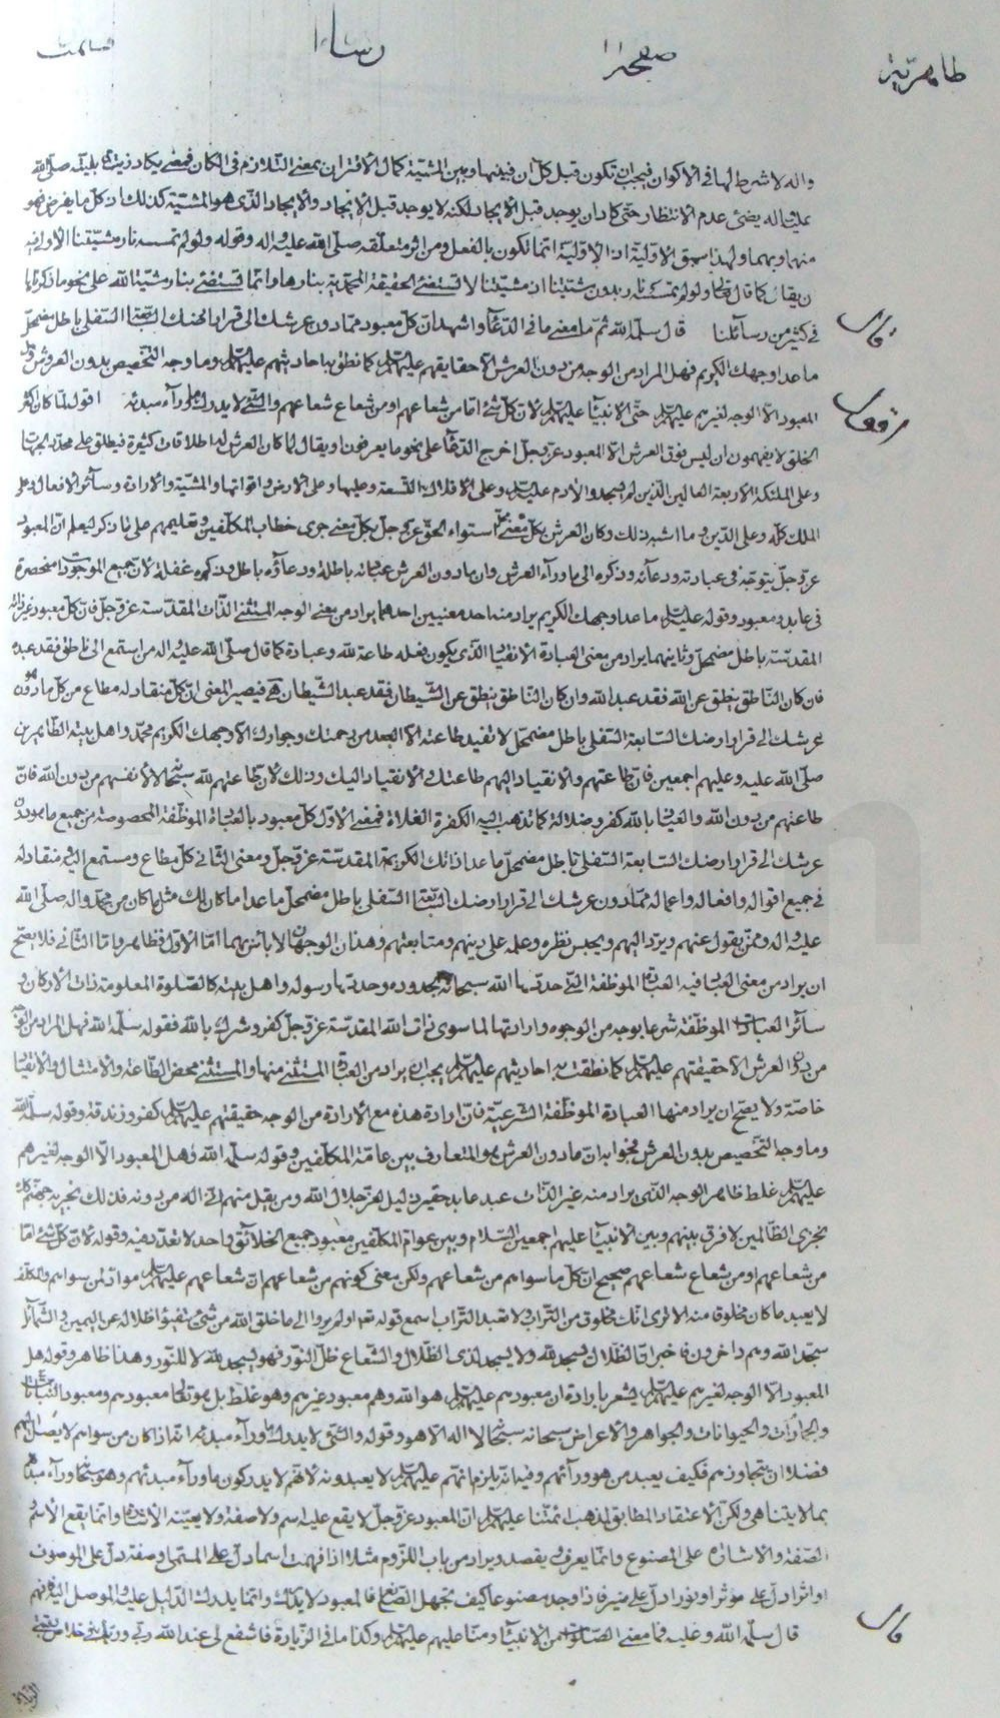 طاهرية صفحة رسا
وانه لا شرط لها في الاكوان فيجب ان تكون قبل كل ان فبينها وبين المشية كمال الاقتران بمعنى التلازم في المكان فمعنى يكاد زيتها صلى الله
عليه واله يضئ عدم الانتظار حتى كاد ان يوجد قبل الايجاد لكنه لا يوجد قبل الايجاد والايجاد الذي هو المشية كذلك اذ كل ما يفرض فهو
منها وبها ولهذا سبق الاولية اذ الاولية انما تكون بالفعل ومن اثر متعلقه صلى الله عليه واله وقوله ولو لم تمسسه نار مشيتنا
يقال كما قال تعالى ولو لم تمسسه نار بدون مشيتنا اذ مشيتنا لا تستضئ الحقيقة المحمدية بنارها وانما تستضئ بنار مشية الله على نحو ما ذكرنا
في كثير من رسائلنا قال سلمه الله ثم ما معنى ما في الدعاء واشهد ان كل معبود مما دون عرشك الى قرار ارضك السابعة السفلى باطل مضمحل
ما عدا وجهك الكريم فهل المراد من الوجه من دون العرش الا حقايقهم عليهم السلام كما نطق به احاديثهم عليهم السلام وما وجه التخصيص بدون العرش وهل
المعبود الا الوجه لغيرهم عليهم السلام حتى الانبياء عليهم السلام لان كل شئ اما من شعاعهم او من شعاع شعاعهم والشئ لا يدرك ما وراء مبدئه اقول لما كان اكثر
الخلق لا يفهمون ان ليس فوق العرش الا المعبود عز وجل اخرج الدعاء على نحو ما يعرفون او يقال لما كان العرش له اطلاقات كثيرة فيطلق على محدد الجهات
وعلى الملئكة الاربعة العالين الذين لم يسجدوا لادم عليه السلام وعلى الافلاك التسعة وعليها وعلى الارض واقواتها والمشية والارادة وسائر الافعال وعلى
الملك كله وعلى الدين وما اشبه ذلك وكان العرش بكل معنى محل استواء الحق عز وجل بكل معنى جرى خطاب المكلفين وتعليمهم على ما ذكر ليعلم ان المعبود
عز وجل يتوجه في عبادته ودعائه وذكره الى ما وراء العرش وان ما دون العرش عبادته باطلة ودعاؤه باطل وذكره غفلة لان جميع الموجودات منحصرة
في عابد ومعبود وقوله عليه السلام ما عدا وجهك الكريم يراد منه احد معنيين احدهما يراد من معنى الوجه المستثنى الذات المقدسة عز وجل فان كل معبود غير ذاته
المقدسة باطل مضمحل وثانيهما يراد من معنى العبادة الانقياد الذي يكون فعله طاعة لله وعبادة كما قال صلى الله عليه واله من استمع الى ناطق فقد عبده
فان كان الناطق ينطق عن الله فقد عبد الله وان كان الناطق ينطق عن الشيطان فقد عبد الشيطان فيصير المعنى ان كل منقاد له مطاع من كل ما دون
عرشك الى قرار ارضك السابعة السفلى باطل مضمحل لا تفيد طاعته الا البعد من رحمتك وجوارك الا وجهك الكريم محمد واهل بيته الطاهرين
صلى الله عليه وعليهم اجمعين فان طاعتهم والانقياد اليهم طاعتك والانقياد اليك وذلك لان طاعتهم لله سبحانه لا لانفسهم من دون الله فان
طاعتهم من دون الله والعياذ بالله كفر وضلالة كما تذهب اليه الكفرة الغلاة فمعنى الاول كل معبود بالعبادة الموظفة المخصوصة من جميع ما دون
عرشك الى قرار ارضك السابعة السفلى باطل مضمحل ما عدا ذاتك الكريمة المقدسة عز وجل ومعنى الثاني كل مطاع ومستمع اليه منقاد له
في جميع اقواله وافعاله واعماله مما دون عرشك الى قرار ارضك السابعة السفلى باطل مضمحل ما عدا ما كان لك مثل ما كان من محمد واله صلى الله
عليه واله وممن يقول عنهم ويرد اليهم ويحبس نظره وعلمه على دينهم ومتابعتهم وهذان الوجهان لا باس بهما اما الاول فظاهر واما الثاني فلا يصح
ان يراد من معنى العبادة فيه العبادة الموظفة التي حددها الله سبحانه بحدوده وحددها رسوله واهل بيته كالصلوة المعلومة ذات الاركان و
سائر العبادات الموظفة شرعا بوجه من الوجوه وارادتها لما سوى ذات الله المقدسة عز وجل كفر وشرك بالله فقوله سلمه الله فهل المراد من الوجه
من دون العرش الا حقيقتهم عليهم السلام كما نطقت به احاديثهم عليهم السلام يجب ان يراد من العبادة المستثنى منها والمستثنى محض الطاعة والامتثال والانقياد
خاصة ولا يصح ان يراد منها العبادة الموظفة الشرعية فان ارادة هذه مع الارادة من الوجه حقيقتهم عليهم السلام كفر وزندقة وقوله سلمه الله
وما وجه التخصيص بدون العرش فجوابه ان ما دون العرش هو المتعارف بين عامة المكلفين وقوله سلمه الله وهل المعبود الا الوجه لغيرهم
عليهم السلام غلط ظاهر الوجه الذي يراد منه غير الذات عبد عابد حقير ذليل لعز جلال الله ومن يقل منهم اني اله من دونه فذلك نجزيه جهنم كذلك
نجزي الظالمين لا فرق بينهم وبين الانبياء عليهم اجمعين السلام وبين عوام المكلفين معبود جميع الخلائق واحد لا تعدد فيه وقوله لان كل شئ اما
من شعاعهم او من شعاع شعاعهم صحيح ان كل ما سواهم من شعاعهم ولكن معنى كونهم من شعاعهم ان شعاعهم عليهم السلام مواد من سواهم والمكلف
لا يعبد ما كان مخلوقا منه الا ترى انك مخلوق من التراب ولا تعبد التراب اسمع قوله تعالى اولم يروا الى ما خلق الله من شئ يتفيؤا ظلاله عن اليمين والشمائل
سجدا لله وهم داخرون فاخبر ان الظلال تسجد لله ولا يسجد لذي الظلال والشعاع ظل النور فهو يسجد لله لا للنور وهذا ظاهر وقوله هل
المعبود الا الوجه لغيرهم عليهم السلام يشعر بارادة ان معبودهم عليهم السلام هو الله وهم معبود غيرهم وهو غلط بل هو تعالى معبودهم ومعبود النباتات
والجمادات والحيوانات والجواهر والاعراض سبحانه سبحانه لا اله الا هو وقوله والشئ لا يدرك ما وراء مبدئه انه اذا كان من سواهم لا يصل اليهم
فضلا ان يتجاوزهم فكيف يعبد من هو ورائهم وفيه انه يلزم انهم عليهم السلام لا يعبدونه لانهم لا يدركون ما وراء مبدئهم وهو سبحانه وراء مبدئهم
بما لا يتناهى ولكن الاعتقاد المطابق لمذهب ائمتنا عليهم السلام ان المعبود عز وجل لا يقع عليه اسم ولا صفة ولا يعينه الاشارة وانما يقع الاسم و
الصفة والاشارة على المصنوع وانما يعرف ويقصد ويراد من باب اللزوم مثلا اذا فهمت اسما دل على المسمى وصفة دل على الموصوف
او اثرا دل على مؤثر او نورا دل على منير فاذا وجد مصنوعا كيف تجهل الصانع فالمعبود لا يدرك وانما يدرك الدليل عليه والموصل اليه
قال سلمه الله وعليه فما معنى الصلوات من الانبياء ومنا عليهم عليهم السلام وكذا ما في الزيارة فاشفع لي عند الله ربي وربك في خلاص رقبتي
قال
اقول
قال